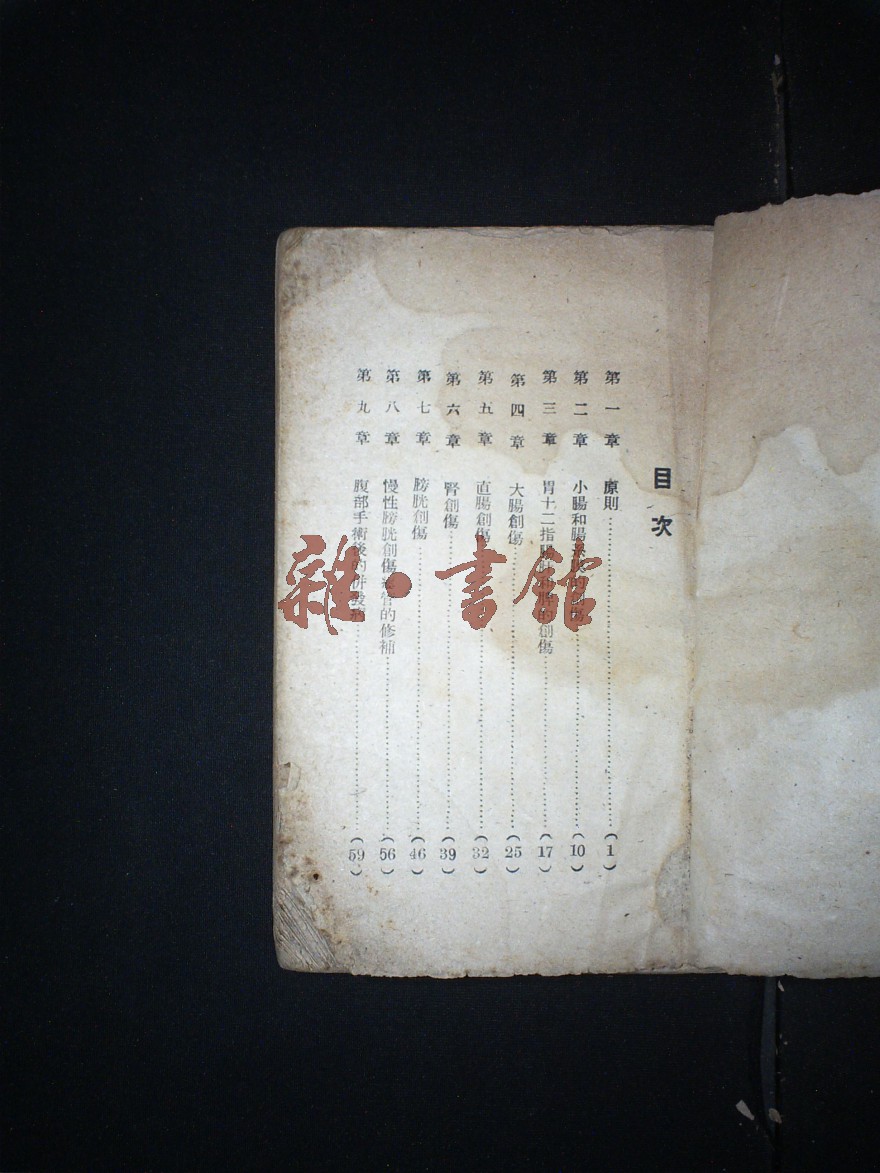 目次
第一章 原則……(1)
第二章 小腸和腸的創傷……(10)
第三章 胃十二指腸的創傷……(17)
第四章 大腸創傷……(25)
第五章 直腸創傷……(32)
第六章 腎創傷……(39)
第七章 膀胱創傷……(46)
第八章 慢性膀胱創傷管的修補……(56)
第九章 腹部手術後的併發……(59)
雜·書館